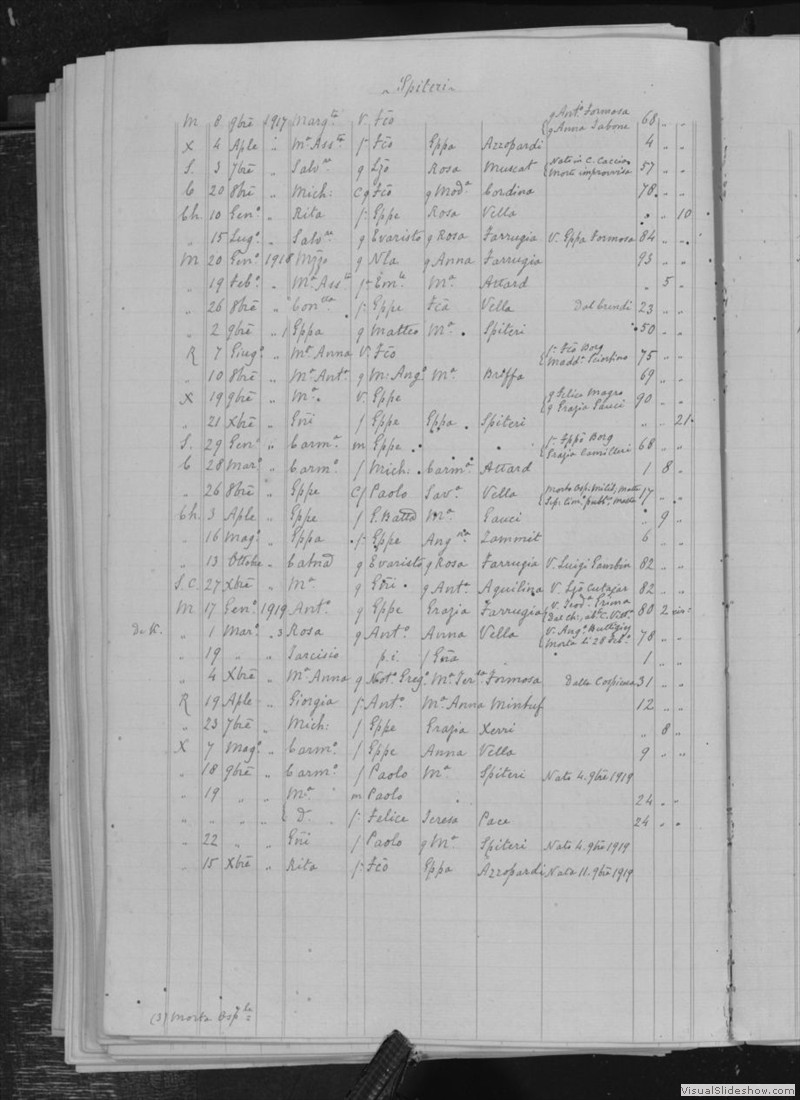 Spiteri
M 8 9bre 1917 Marg.ta V. Fco q Ant.o Formosa q Anna Sabone 68 " "
X 4 Aple " M.a Ass.ta f. Fco Eppa Azzopardi 4 " "
S. 3 7bre " Salv.re q Ljo Rosa Muscat Nato in C. Caccia Morto improvviso 57 " "
C 20 8bre " Mich: C q Fco q Mod.a Cordina 78 " "
Ch. 10 Gen.o " Rita f. Eppe Rosa Vella " " 10
" 15 Lug.o " Salv.re q Evaristo q Rosa Farrugia V. Eppa Formosa 84 " "
M 20 Gen.o 1918 Mijo q Nla q Anna Farrugia 93 " "
" 19 Feb.o " M.a Ass.ta f. Em.le M.a Attard " 5 "
" 26 8bre " Con.tta f. Eppe Fca Vella Dal Crendi 23 " "
" 2 9bre " Eppa q Matteo M.a Spiteri 50 " "
R 7 Giug.o " M.a Anna V. Fco f. Fco Borg Madd.a Scintino 75 " "
" 10 8bre " M.a Ant.a q M: Ang.o M.a Briffa 69 " "
X 19 9bre " M.a V. Eppe q Felice Magro q Grazia Gauci 90 " "
" 21 Xbre " Gni f Eppe Eppa Spiteri " " 21
S. 29 Gen.o " Carm.a m Eppe f. Eppe Borg Grazia Camilleri 68 " "
C 28 Mar.o " Carm.o f Mich: Carm.a Attard 1 8 "
" 26 8bre " Eppe C f Paolo Sav.a Vella 17 " "
Ch. 3 Aple " Eppe f G. Batta M.a Gauci " 9 "
" 16 Mag.o " Eppa f. Eppe Ang.ca Zammit 6 " "
" 13 Ottobre " Catna q Evaristo q Rosa Farrugia V. Luigi Gambin 82 " "
S.C. 27 Xbre " M.a q Gni q Ant.a Aquilina V. Ljo Cutajar 82 " "
M 17 Gen.o 1919 Ant.a q Eppe Grazia Farrugia 80 2
De V. " 1 Mar.o " 3 Rosa q Ant.o Anna Vella V. Ang.o Buttigieg Morta li 28 Feb.o 78 "
" 19 " " Tarcisio p.i. f Gna 1 "
" 4 Xbre " M.a Anna q Not.o Greg.o M.a Ter.sa Formosa Dalla Cospicua 31 " "
R 19 Aple " Giorgia f. Ant.o M.a Anna Mintuf 12 " "
" 23 7bre " Mich: f Eppe Grazia Xerri " 8 "
X 7 Mag.o " Carm.o f Eppe Anna Vella 9 " "
" 18 9bre " Carm.o f Paolo M.a Spiteri Nato 4. 9bre 1919
" 19 " " M.a m Paolo 24 " "
" " " " D. f. Felice Teresa Pace 24 " "
" 22 " " Gni f Paolo q M.a Spiteri Nato 4. 9bre 1919
" 15 Xbre " Rita f. Fco Eppa Azzopardi Nata 11. 9bre 1919
(3) Morta Osp.le
VisualSlideshow.com